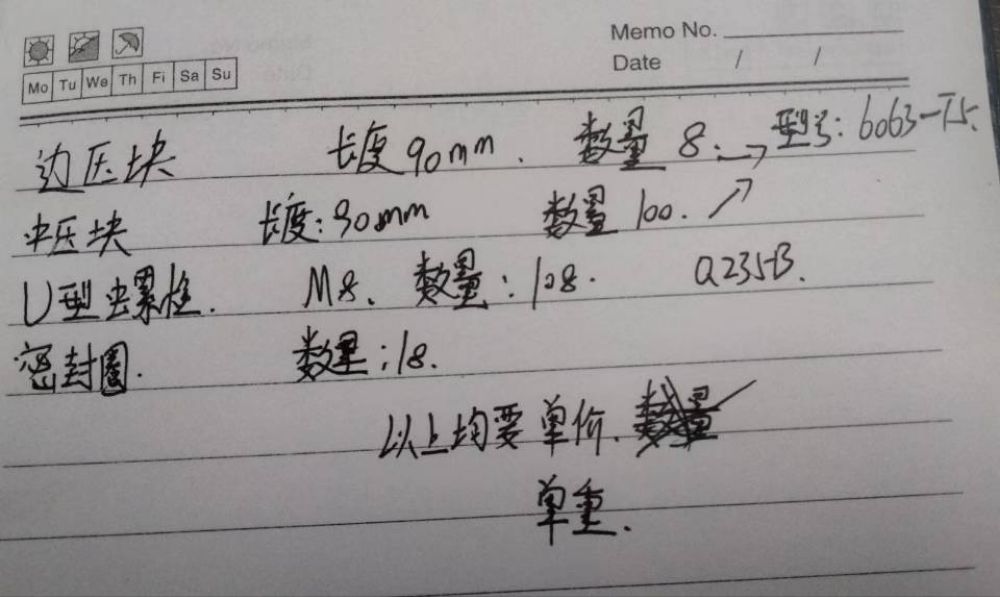 Memo No.
Date / /
Mo Tu We Th Fi Sa Su
边压块 长度90mm. 数量 8. → 型号: 6063-T5.
中压块 长度:90mm 数量 100. ↗
U型螺栓. M8. 数量:108. Q235B.
密封圈. 数量:18.
以上均要单价.
单重.